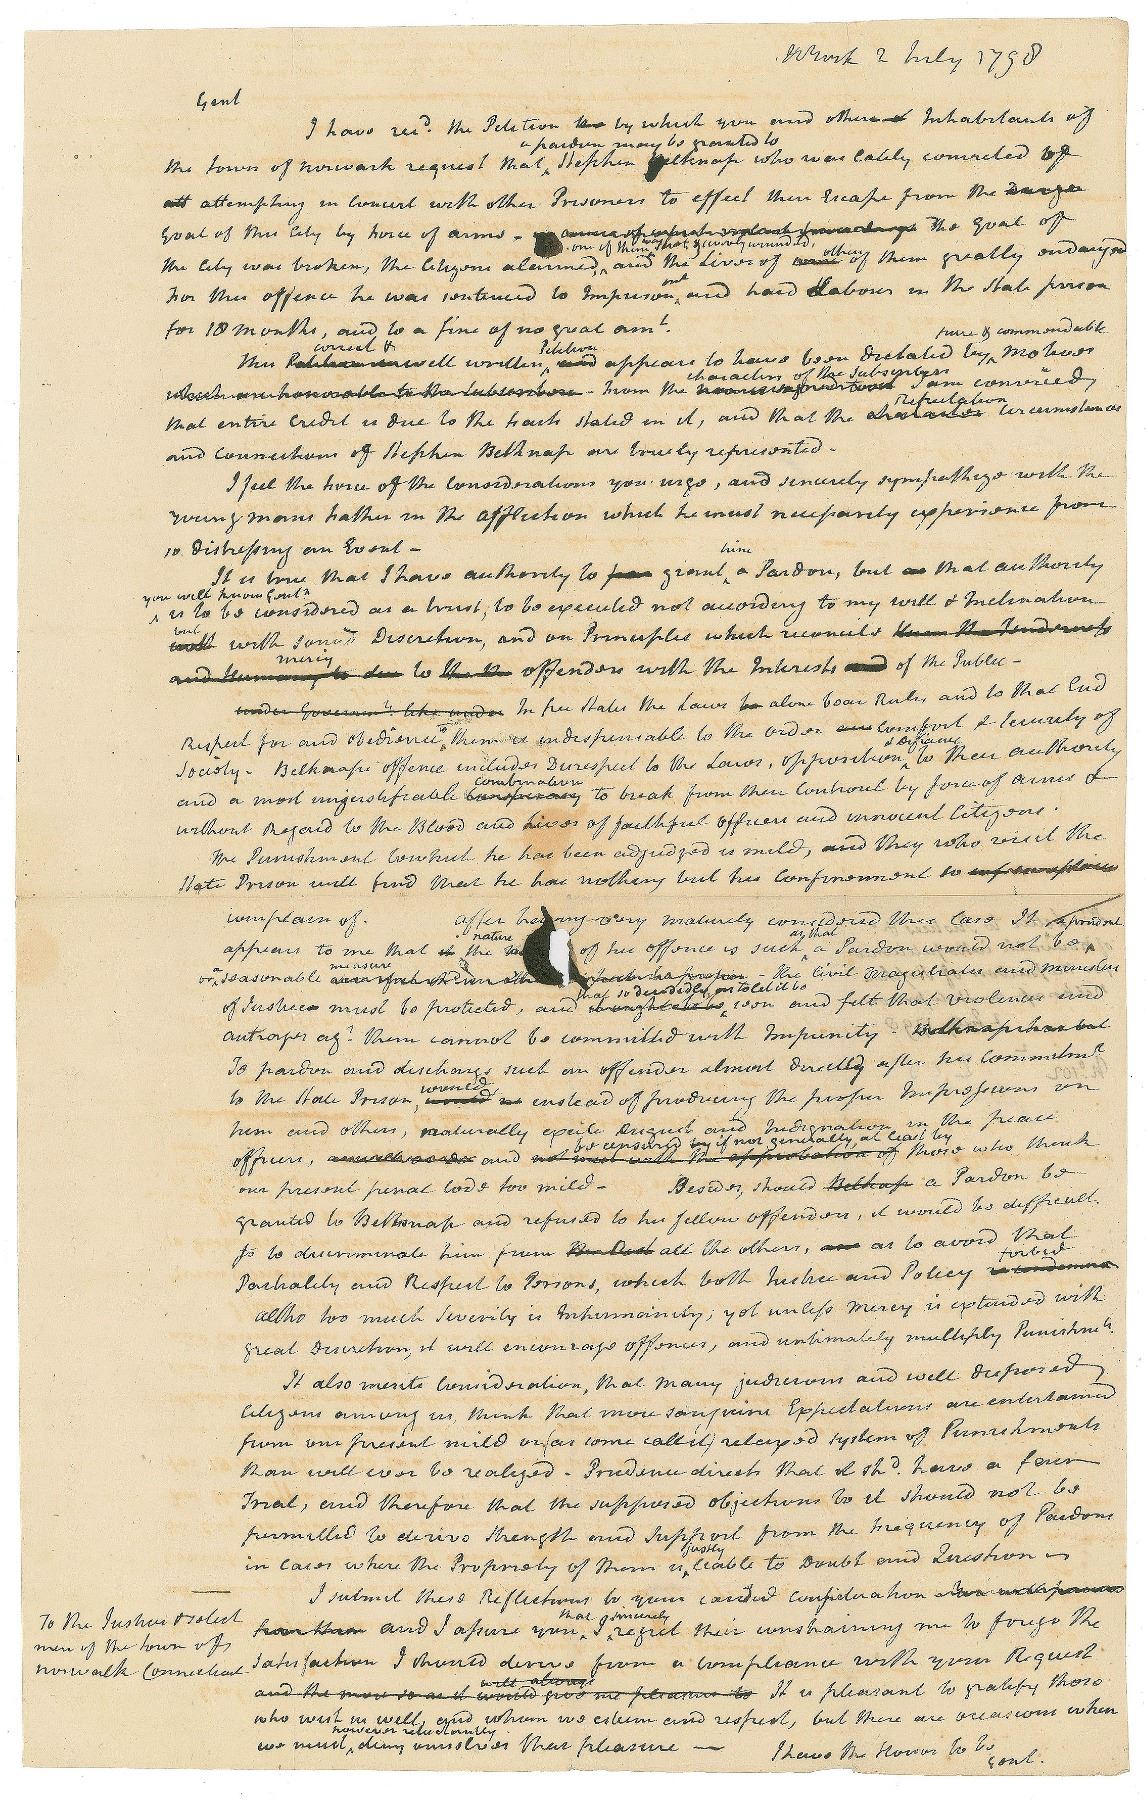 NYork 2 July 1798
Gent
I have recd. the Petition by which you and other Inhabitants of
a pardon may be granted to
the town of norwark request that Stephen Belknap who was lately convicted of
att attempting in Concert with other Prisoners to effect their Escape from the
Goal of this City by force of arms - the Goal of
one of them was shot & severely wounded,
the City was broken, the Citizens alarmed, and the Lives of others of them greatly endangered
For this offence he was sentenced to Imprisonmt and hard Labour in the State prison
for 18 months, and to a fine of no great amt.
correct & Petition pure & commendable
This Petition is well written, and appears to have been dictated by motives
characters of the subscribers
which are honorable to the Subscribers - from the I am convinced
Reputation
that entire Credit is due to the facts stated in it, and that the character Circumstances
and Connections of Stephen Belknap are truely represented -
I feel the force of the Considerations you urge, and sincerely sympathize with the
young mans father in the affliction which he must necessarily experience from
so distressing an Event -
him
It is true that I have authority to grant a Pardon, but that authority
you will know Gent.
is to be considered as a trust, to be executed not according to my will & Inclination
but
with sound Discretion, and on Principles which reconcile them the Tenderness
mercy
and Humanity due to offenders with the Interests and of the Public -
under Governmts. like under In free States the Laws alone bear Rule, and to that End
Respect for and obedience to them is indispensable to the order and Comfort & Security of
& Defiance
Society - Belknaps offence includes Disrespect to the Laws, opposition to their authority
combination
and a most unjustifiable Conspiracy to break from their Controul by force of arms &
without Regard to the Blood and Lives of faithful officers and innocent Citizens.
The Punishment to which he has been adjudged is mild, and they who visit the
State Prison will find that he has nothing but his Confinement to
complain of. after having very maturely considered this Case It
nature as that
appears to me that the of his offence is such a Pardon would not be
a measure
or seasonable - the Civil magistrates and ministers
that so decidedly as to let it be
of Justice must be protected, and seen and felt that violences and
outrages agt. them cannot be committed with Impunity Belknap has but
To pardon and discharge such an offender almost directly after his Commitmt
would
to the State Prison, instead of producing the proper Impressions on
him and others, naturally excite Disgust and Indignation in the peace
be censured by if not generally, at least by
officers, and not meet with the approbation of those who think
our present penal Code too mild - Besides, should Belknap a Pardon be
granted to Belknap and refused to his fellow offenders, it would be difficult
so to discriminate him from all the others, as to avoid that
forbid
Partiality and Respect to Persons, which both Justice and Policy condemn
altho too much Severity is Inhumanity; yet unless mercy is extended with
great Discretion, it will encourage offences, and untimately multiply Punishmts.
It also merits Consideration, that many judicious and well disposed
Citizens among us, think that more sanguine Expectations are entertained
from our present mild or (as some call it) relaxed system of Punishments
than will ever be realized - Prudence directs that it shd. have a fair
Trial, and therefore that the supposed objections to it should not be
permitted to derive Strength and Support from the frequency of Pardons
justly
in cases where the Propriety of them is liable to Doubt and Question -
I submit these Reflections to your candid consideration
that sincerely
from them and I assure you, I regret their constraining me to forego the
To the Justices & select
men of the town of
norwalk Connecticut
Satisfaction I should derive from a compliance with your Request
will always
and the more so as it would give me pleasure to It is pleasant to gratify those
who wish us well, and whom we esteem and respect, but there are occasions when
however reluctantly
we must deny ourselves that pleasure — I have the Honor to be
Gent.